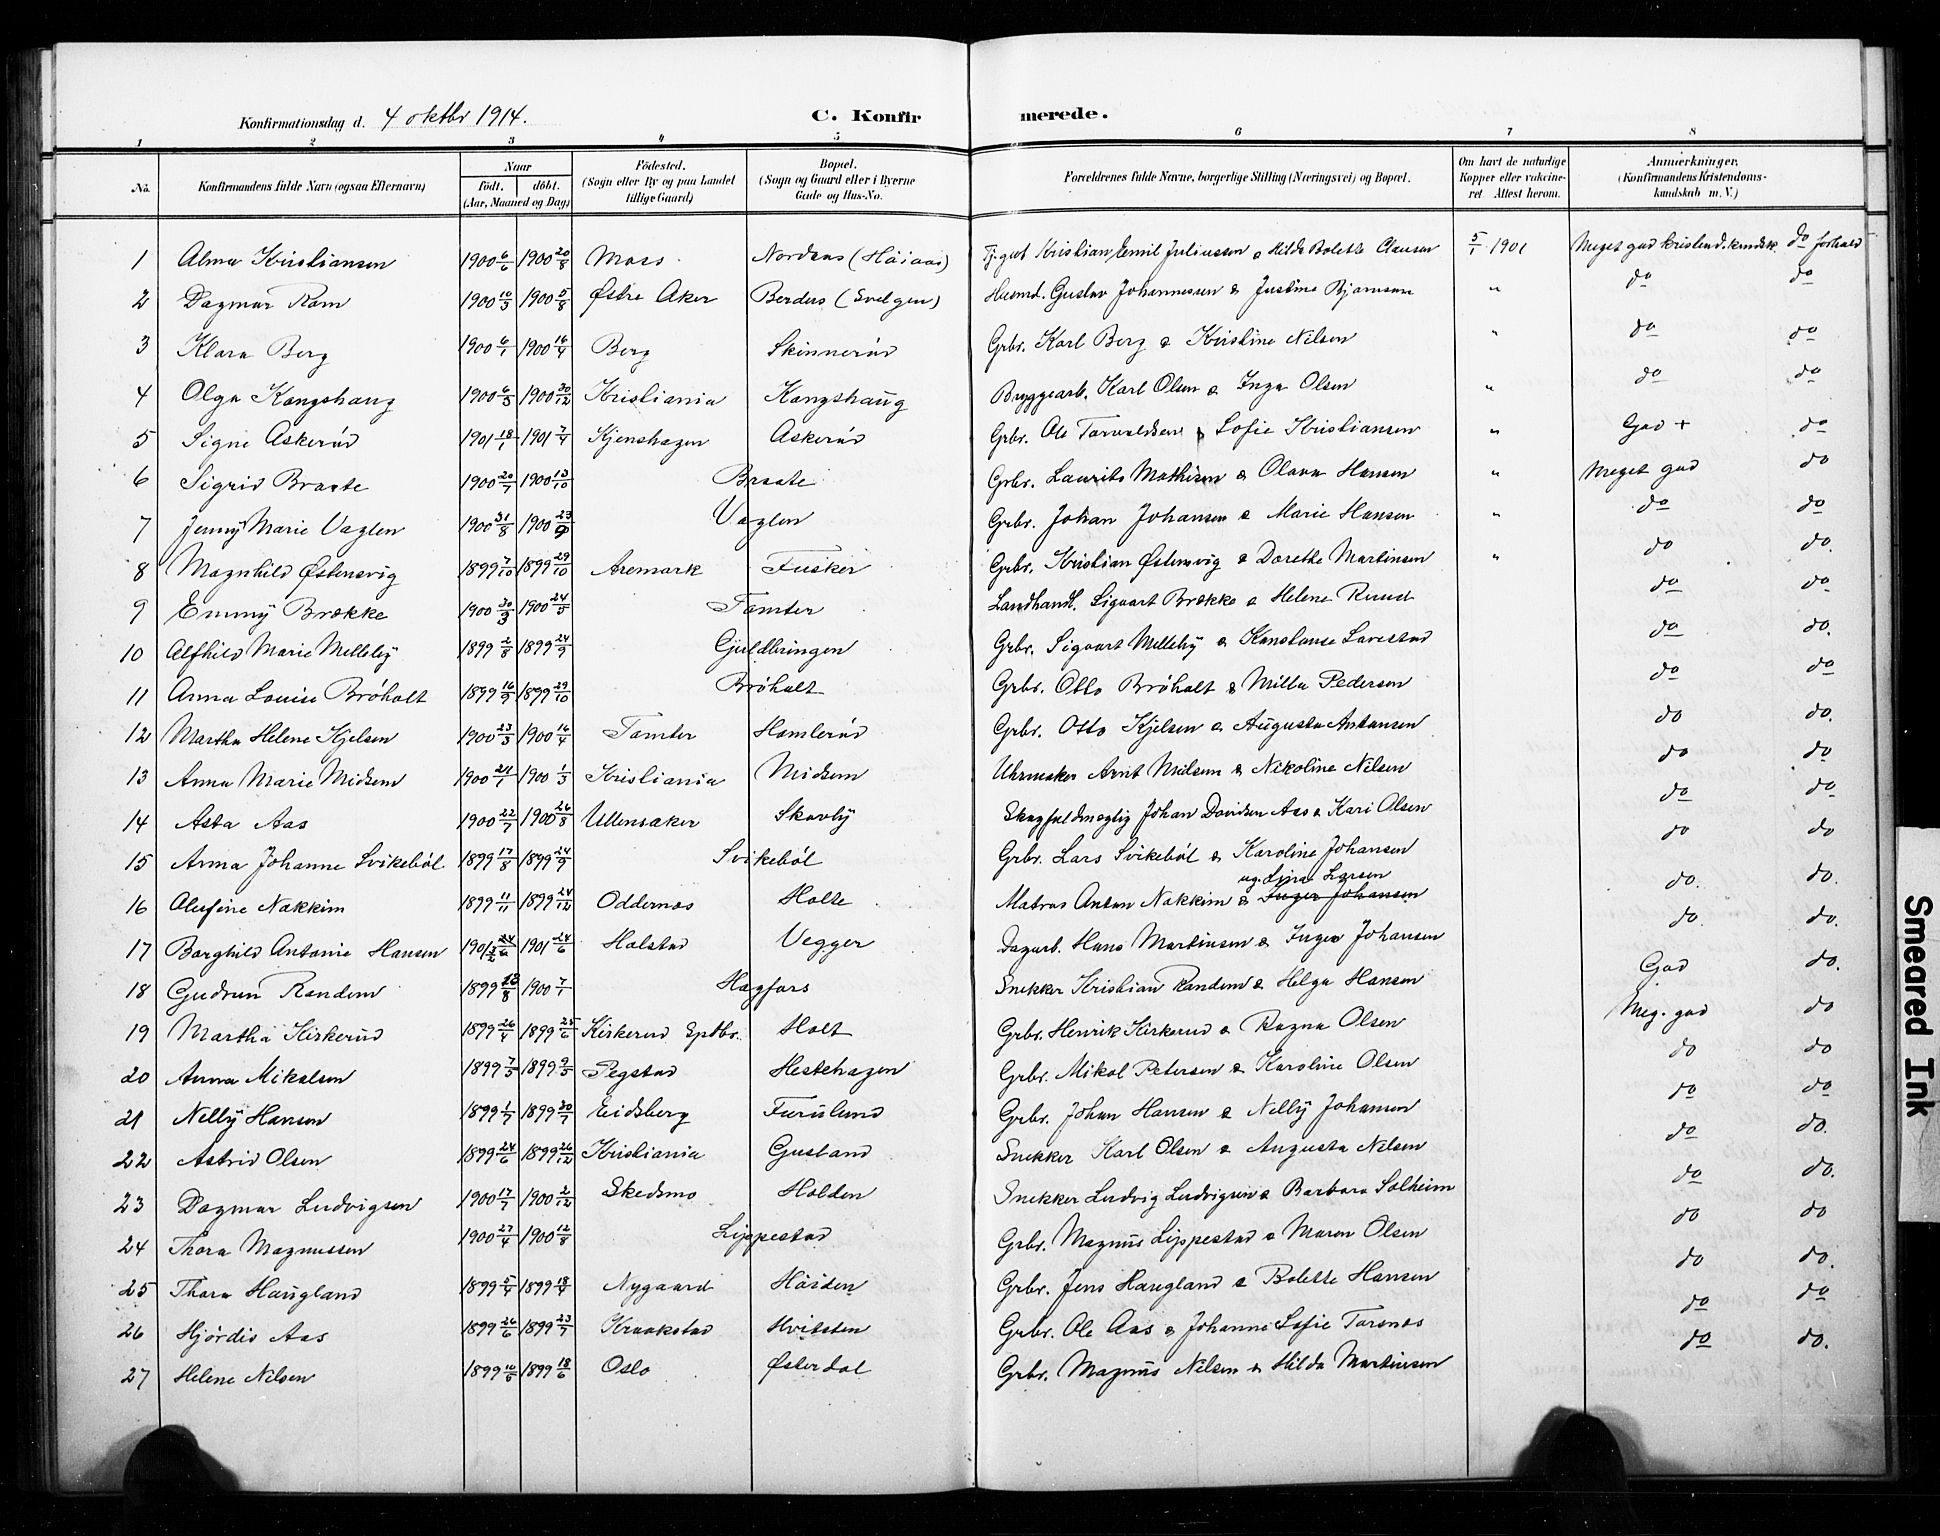 Konfirmationsdag d. 4 oktbr 1914.
C. Konfir merede.
1 2 3 4 5 6 7 8
No. Konfirmandens fulde Navn (ogsaa Efternavn) Naar födt. döbt. (Aar, Maaned og Dag) Födested. (Sogn eller By og paa Landet tillige Gaard) Bopæl. (Sogn og Gaard eller i Byerne Gade og Hus-No. Forældrenes fulde Navne, borgerlige Stilling (Næringsvei) og Bopæl. Om havt de naturlige Kopper eller vakcineret Attest herom. Anmærkninger. (Konfirmandens Kristendomskundskab m. V.)
1 Alma Kristiansen 1900 6/6 1900 20/8 Moss Nordaas (Höiaas) Tj.gut Kristian Emil Juliussen & Hilda Bolette Clausen 5/1 1901 Meget god kristend. kundsk. do forhold
2 Dagmar Ram 1900 10/3 1900 5/8 Østre Aker Berders (Svelgen) Husmd. Gustav Johannessen & Justine Bjørnsen " do do
3 Klara Berg 1900 6/1 1900 16/4 Berg Skinnerüd Grbr. Karl Berg & Kristine Nilsen " do do
4 Olga Kongshaug 1900 6/3 1900 30/12 Kristiania Kongshaüg Bryggearb. Karl Olsen & Inga Olsen " do do
5 Signe Askerüd 1901 18/1 1901 7/4 Kjenshagen Askerüd Grbr. Ole Torvaldsen & Sofie Kristiansen " God + do
6 Sigrid Braate 1900 20/7 1900 13/10 Braate Grbr. Laurits Mathisen & Olava Hansen " Meget god do
7 Jenny Marie Vaglen 1900 31/8 1900 23/9 Vaglen Grbr. Johan Johansen & Marie Hansen " do do
8 Magnhild Østensvig 1899 7/10 1899 29/10 Aremark Fusker Grbr. Kristian Østensvig & Dorethe Martinsen " do do.
9 Emmy Brække 1900 30/3 1900 24/5 Tomter Landhandl. Sigvart Brække & Helene Ruud do do
10 Alfhild Marie Melleby 1899 2/8 1899 24/9 Gjuldbringen Grbr. Sigvart Melleby & Konstanse Lørestad do do.
11 Anna Louise Bröholt 1899 16/9 1899 29/10 Bröholt Grbr. Otto Bröholt & Milla Pedersen do do
12 Martha Helene Kjelsen 1900 23/3 1900 16/4 Tomter Homlerüd Grbr. Otto Kjelsen & Augusta Antonsen do do.
13 Anna Marie Midsem 1900 24/1 1900 1/3 Kristiania Midsem Uhrmaker Arnt Midsem & Nikoline Nilsen do do
14 Asta Aas 1900 22/7 1900 26/8 Ullensaker Skovly Skogfuldmægtig Johan Davidsen Aas & Kari Olsen do do
15 Anna Johanne Svikeböl 1899 17/8 1899 24/9 Svikeböl Grbr. Lars Svikeböl & Karoline Johansen do do
16 Alufine Nakkim 1899 11/11 1899 24/12 Oddernes Holte Matros Anton Nakkim & ug. Lina Larsen Inger Johansen do. do.
17 Borghild Antonie Hansen 1901 1901 24/6 Holstad Vegger Dagarb. Hans Martinsen & Inger Johansen do. do.
18 Gudrun Randem 1899 1900 7/1 Hagfors Snekker Kristian Randem & Helga Hansen God do.
19 Martha Kirkerüd 1899 26/4 1899 25/6 Kirkerud Sptbr. Holt Grbr. Henrik Kirkerud & Ragna Olsen Meg. god do
20 Anna Mikalsen 1899 7/3 1899 9/5 Segstad Hestehagen Grbr. Mikal Petersen & Karoline Olsen do do
21 Nelly Hansen 1899 1/7 1899 30/7 Eidsberg Furulund Grbr. Johan Hansen & Nelly Johansen do do
22 Astrid Olsen 1899 24/6 1899 26/12 Kristiania Gusland Snekker Karl Olsen & Augusta Nilsen do do.
23 Dagmar Ludvigsen 1900 17/7 1900 2/12 Skedsmo Holden Snekker Ludvig Ludvigsen & Barbara Solheim do do.
24 Thora Magnussen 1900 27/4 1900 12/8 Lippestad Grbr. Magnus Lippestad & Maren Olsen do do
25 Thora Haugland 1899 5/4 1899 18/4 Nygaard Höiden Grbr. Jens Haugland & Bolette Hansen do do.
26 Hjördis Aas 1899 26/6 1899 23/7 Kraakstad Hvitsten Grbr. Ole Aas & Johanne Sofie Torsnes do do
27 Helene Nilsen 1899 1899 18/6 Oslo Østerdal Grbr. Magnus Nilsen & Hilda Martinsen do do.
Smeared Ink